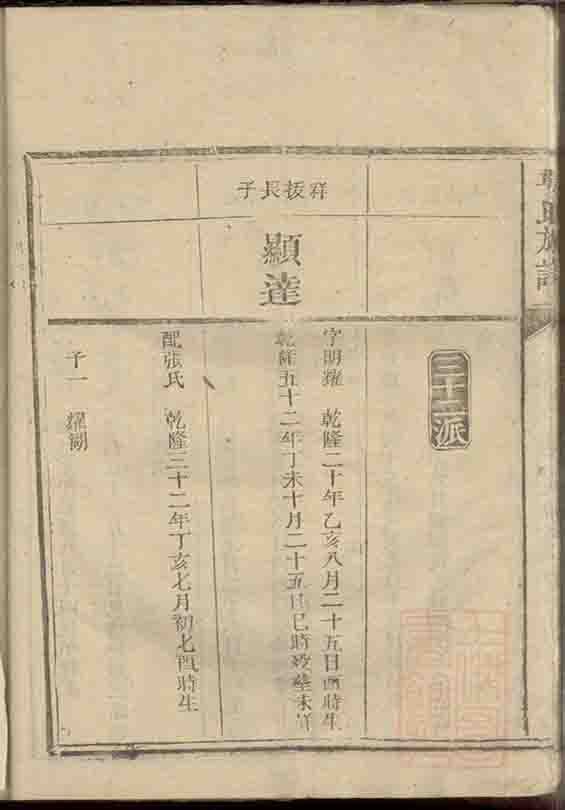 氏族譜
三十二派
祥拔長子
顯達
字明耀 乾隆二十年乙亥八月二十五日酉時生
乾隆五十二年丁未十月二十五日巳時歿塟未詳
配張氏 乾隆三十二年丁亥七月初七酉時生
子一 耀湖